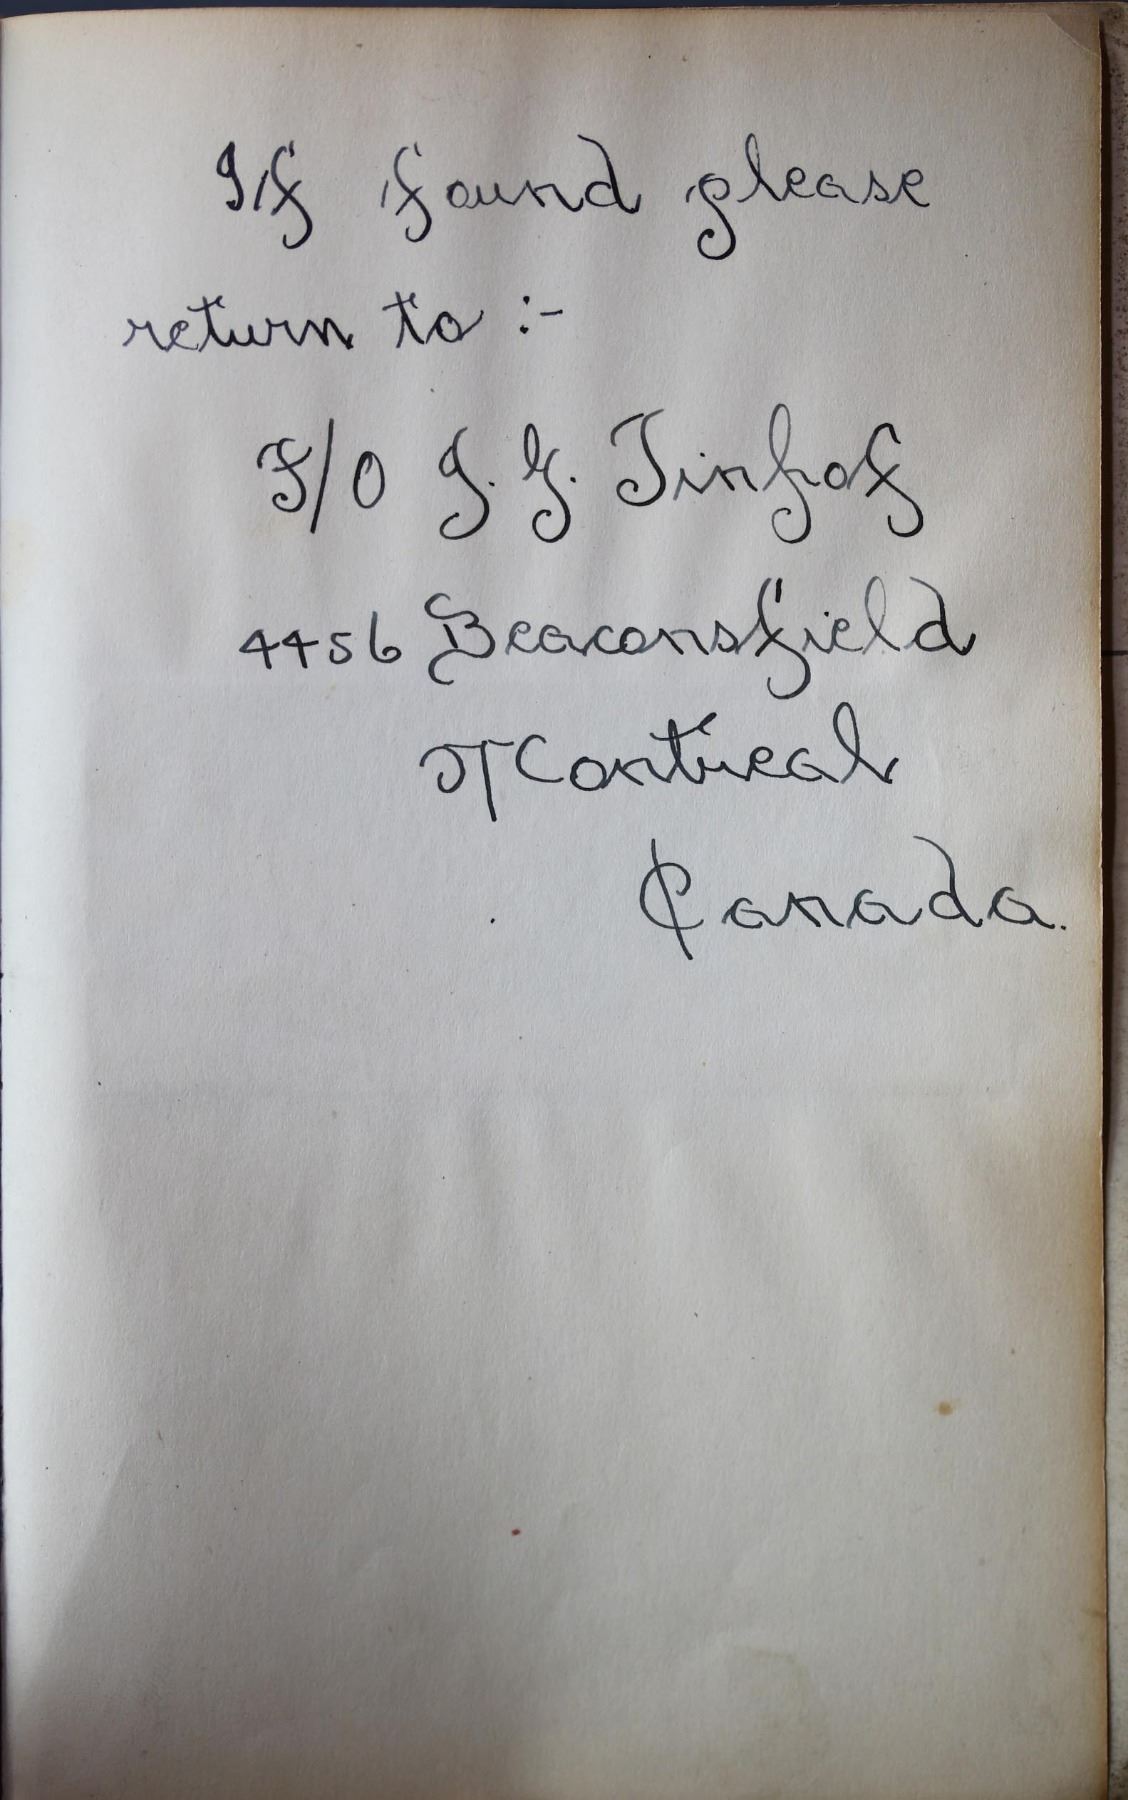 If found please
return to :-
F/O J. G. Tinhof
4456 Beaconsfield
Montreal
Canada.